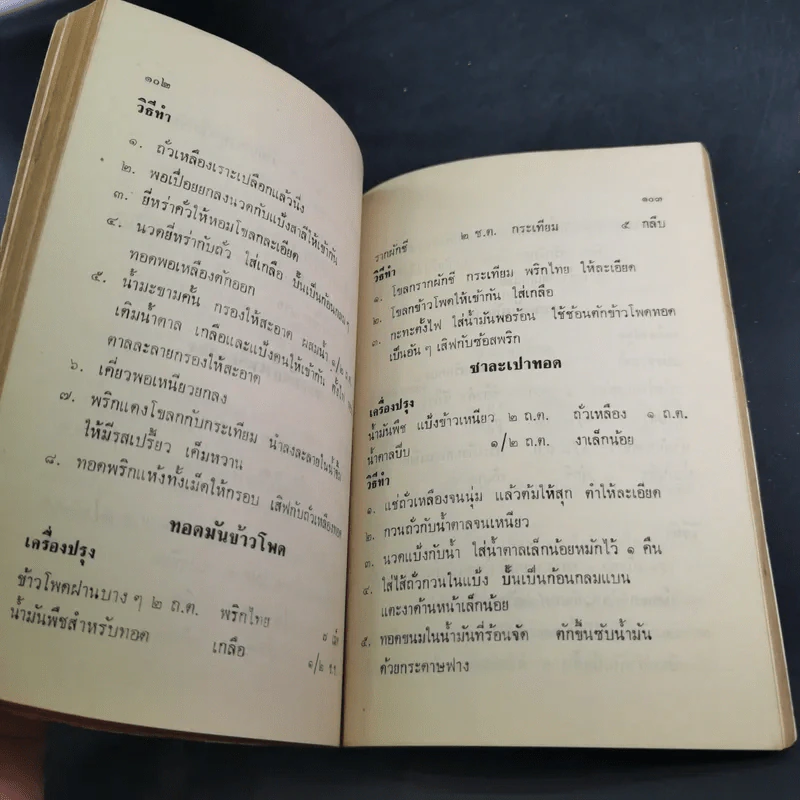 ๑๐๒
วิธีทำ
๑. ถั่วเหลืองเราะเปลือกแล้วนึ่ง
๒. พอเปื่อยยกลงนวดกับแป้งสาลีให้เข้ากัน
๓. ยี่หร่าคั่วให้หอมโขลกละเอียด
๔. นวดยี่หร่ากับถั่ว ใส่เกลือ ปั้นเป็นก้อนกลม ๆ
ทอดพอเหลืองตักออก
๕. น้ำมะขามคั้น กรองให้สะอาด ผสมน้ำ ๑/๒
เติมน้ำตาล เกลือและแป้งคนให้เข้ากัน ตั้งไฟ
ตาลละลายกรองให้สะอาด
๖. เคี่ยวพอเหนียวยกลง
๗. พริกแดงโขลกกับกระเทียม นำลงละลายใน
ให้มีรสเปรี้ยว เค็มหวาน
๘. ทอดพริกแห้งทั้งเม็ดให้กรอบ เสิฟกับถั่วเหลืองทอด
ทอดมันข้าวโพด
เครื่องปรุง
ข้าวโพดฝานบาง ๆ ๒ ถ.ต. พริกไทย ๘ เม็ด
น้ำมันพืชสำหรับทอด เกลือ ๑/๒ ช.ช.
๑๐๓
รากผักชี ๒ ช.ต. กระเทียม ๕ กลีบ
วิธีทำ
๑. โขลกรากผักชี กระเทียม พริกไทย ให้ละเอียด
๒. โขลกข้าวโพดให้เข้ากัน ใส่เกลือ
๓. กะทะตั้งไฟ ใส่น้ำมันพอร้อน ใช้ช้อนตักข้าวโพดทอด
เป็นอัน ๆ เสิฟกับซ้อสพริก
ซาละเปาทอด
เครื่องปรุง
น้ำมันพืช แป้งข้าวเหนียว ๒ ถ.ต. ถั่วเหลือง ๑ ถ.ต.
น้ำตาลปีบ ๑/๒ ถ.ต. งาเล็กน้อย
วิธีทำ
๑. แช่ถั่วเหลืองจนนุ่ม แล้วต้มให้สุก ตำให้ละเอียด
๒. กวนถั่วกับน้ำตาลจนเหนียว
๓. นวดแป้งกับน้ำ ใส่น้ำตาลเล็กน้อยหมักไว้ ๑ คืน
๔. ใส่ไส้ถั่วกวนในแป้ง ปั้นเป็นก้อนกลมแบน
แตะงาด้านหน้าเล็กน้อย
๕. ทอดขนมในน้ำมันที่ร้อนจัด ตักขึ้นซับน้ำมัน
ด้วยกระดาษฟาง